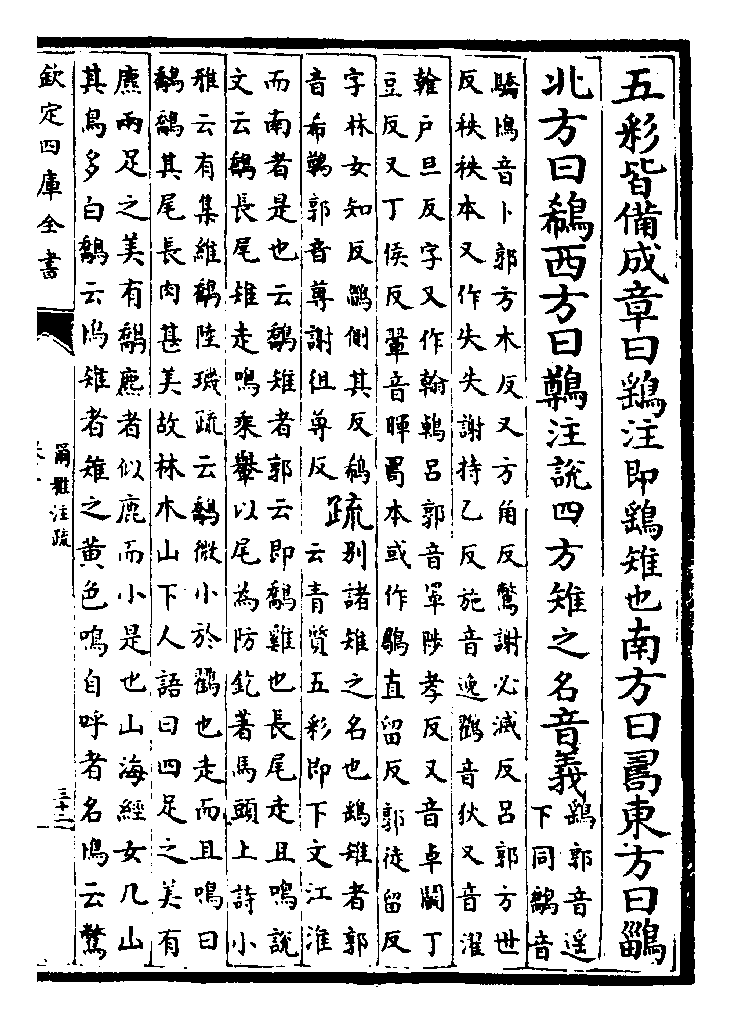 五彩皆備成章曰鷂注即鷂雉也南方曰𠷎東方曰鶅
北方曰鵗西方曰鷷注說四方雉之名音義
鷂郭音遥
下同鷮音
驕鳪音卜郭方木反又方角反鷩謝必滅反呂郭方世
反秩秩本又作失失謝持乙反施音逸鸐音狄又音濯
雗户旦反字又作翰鵫呂郭音罩陟孝反又音卓闘丁
豆反又丁侯反翬音暉𠷎本或作直留反郭徒留反
字林女知反鶅側其反鵗
音希鷷郭音尊謝徂尊反
疏
别諸雉之名也鷂雉者郭
云青質五彩即下文江淮
而南者是也云鷮雉者郭云即鷮雞也長尾走且鳴說
文云鷮長尾雉走鳴乘轝以尾為防釳著馬頭上詩小
雅云有集維鷮陸璣疏云鷮微小於鸐也走而且鳴曰
鷮鷮其尾長肉甚美故林木山下人語曰四足之美有
麃兩足之美有鷮麃者似鹿而小是也山海經女几山
其鳥多白鷮云鳪雉者雉之黄色鳴自呼者名鳪云鷩
欽定四庫全書
爾雅注疏
三十二